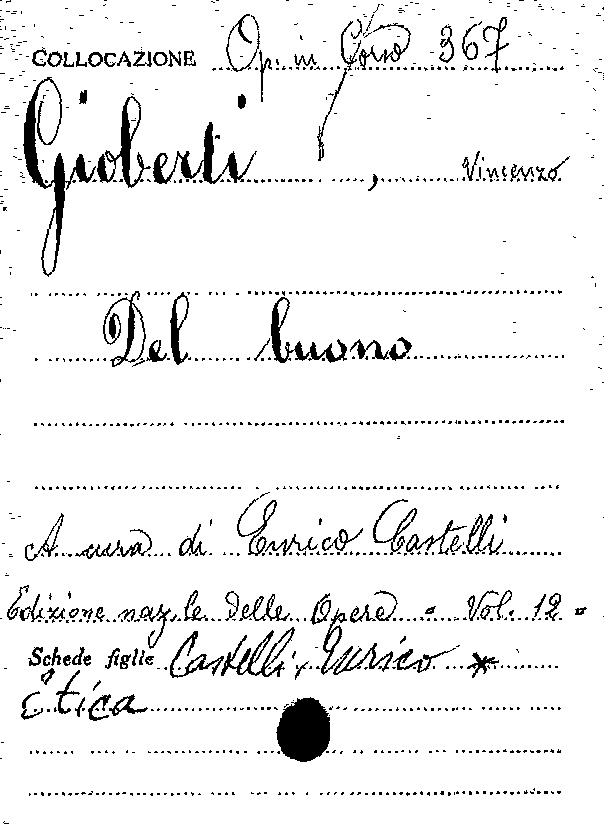 COLLOCAZIONE Op. in Corso 367
Gioberti, Vincenzo
Del buono
A cura di Enrico Castelli
Edizione naz.le delle Opere = Vol. 12 =
Schede figlie Castelli, Enrico *
Etica